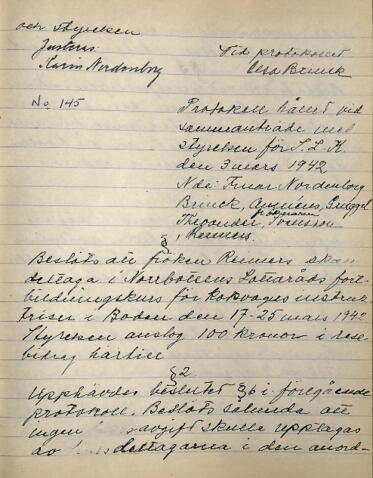 och styrelsen
Justeras:
Karin Nordenborg
Vid protokollet
Elsa Brinck
No 145
Protokoll hållet vid
sammanträde med
styrelsen för S.L.K
den 3 mars 1942
Nordenborg
Brinck,
fröknarna
Theorander, Svensson
, Reimers.
§
Beslöts att fröken Reimers skall
deltaga i Norrbottens Lottaråds fort-
bildningskurs för kokvagnsinstruk-
triser i Boden den 17-25 mars 194
Styrelsen anslog 100 kronor i rese-
bidrag härtill
§2
Upphävdes beslutet §6 i föregående
protokoll. Beslöts sålunda att
ingen avgift skulle upptagas
av deltagarna i den anord-